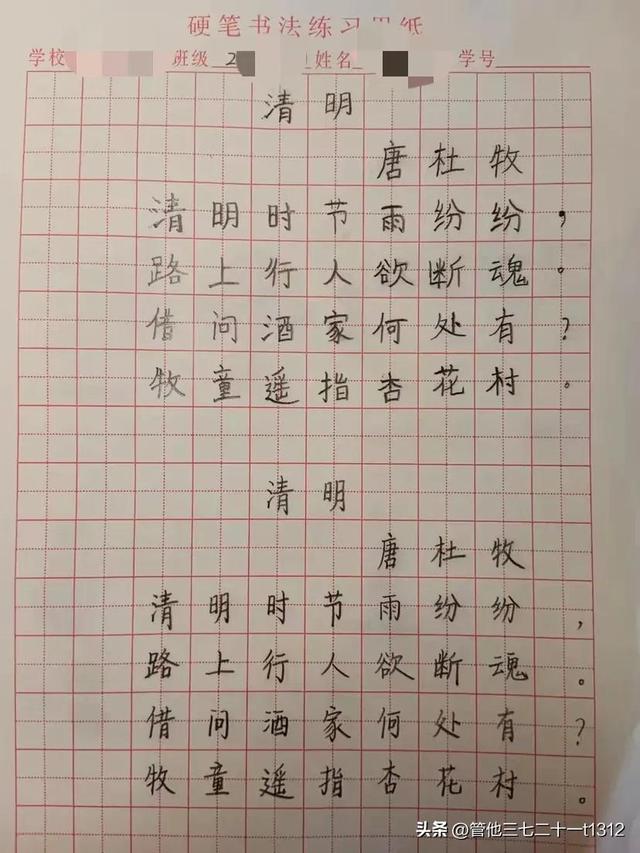 硬笔书法练习用纸
学校 班级 2 姓名 学号
清明
唐杜牧
清明时节雨纷纷,
路上行人欲断魂。
借问酒家何处有?
牧童遥指杏花村。
清明
唐杜牧
清明时节雨纷纷,
路上行人欲断魂。
借问酒家何处有?
牧童遥指杏花村。
头条 @管他三七二十一t1312